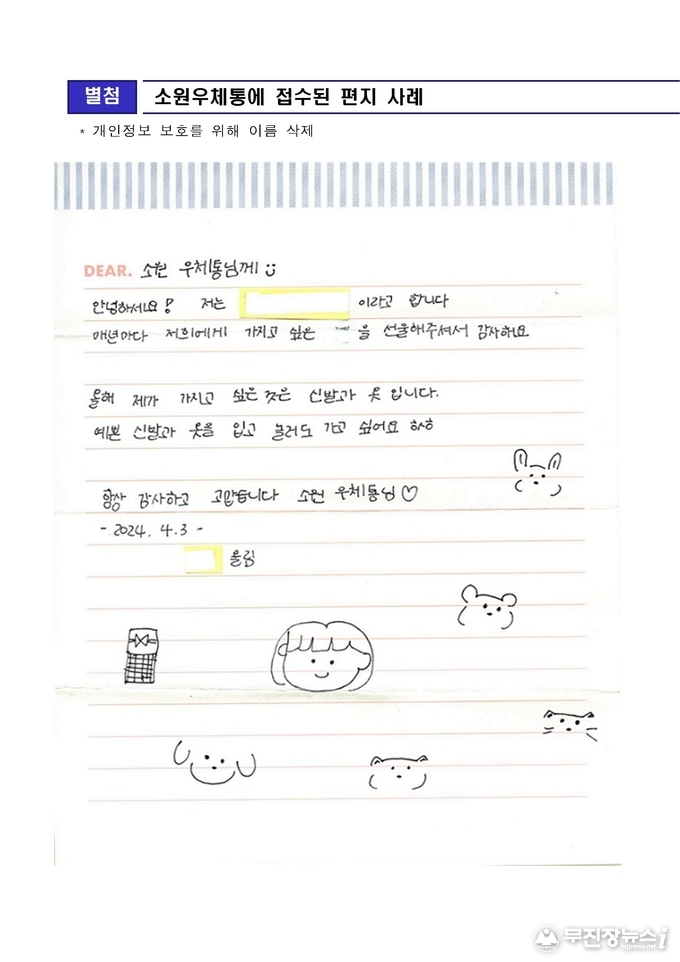 별첨
소원우체통에 접수된 편지 사례
* 개인정보 보호를 위해 이름 삭제
DEAR. 소원 우체통님께
안녕하세요! 저는 이라고 합니다
매년마다 저희에게 가지고 싶은 을 선물해주셔서 감사해요
올해 제가 가지고 싶은 것은 신발과 옷 입니다.
예쁜 신발과 옷을 입고 놀러도 가고 싶어요 하하
항상 감사하고 고맙습니다 소원 우체통님♡
- 2024. 4.3 -
올림
무진장뉴스i
mjjnews.net